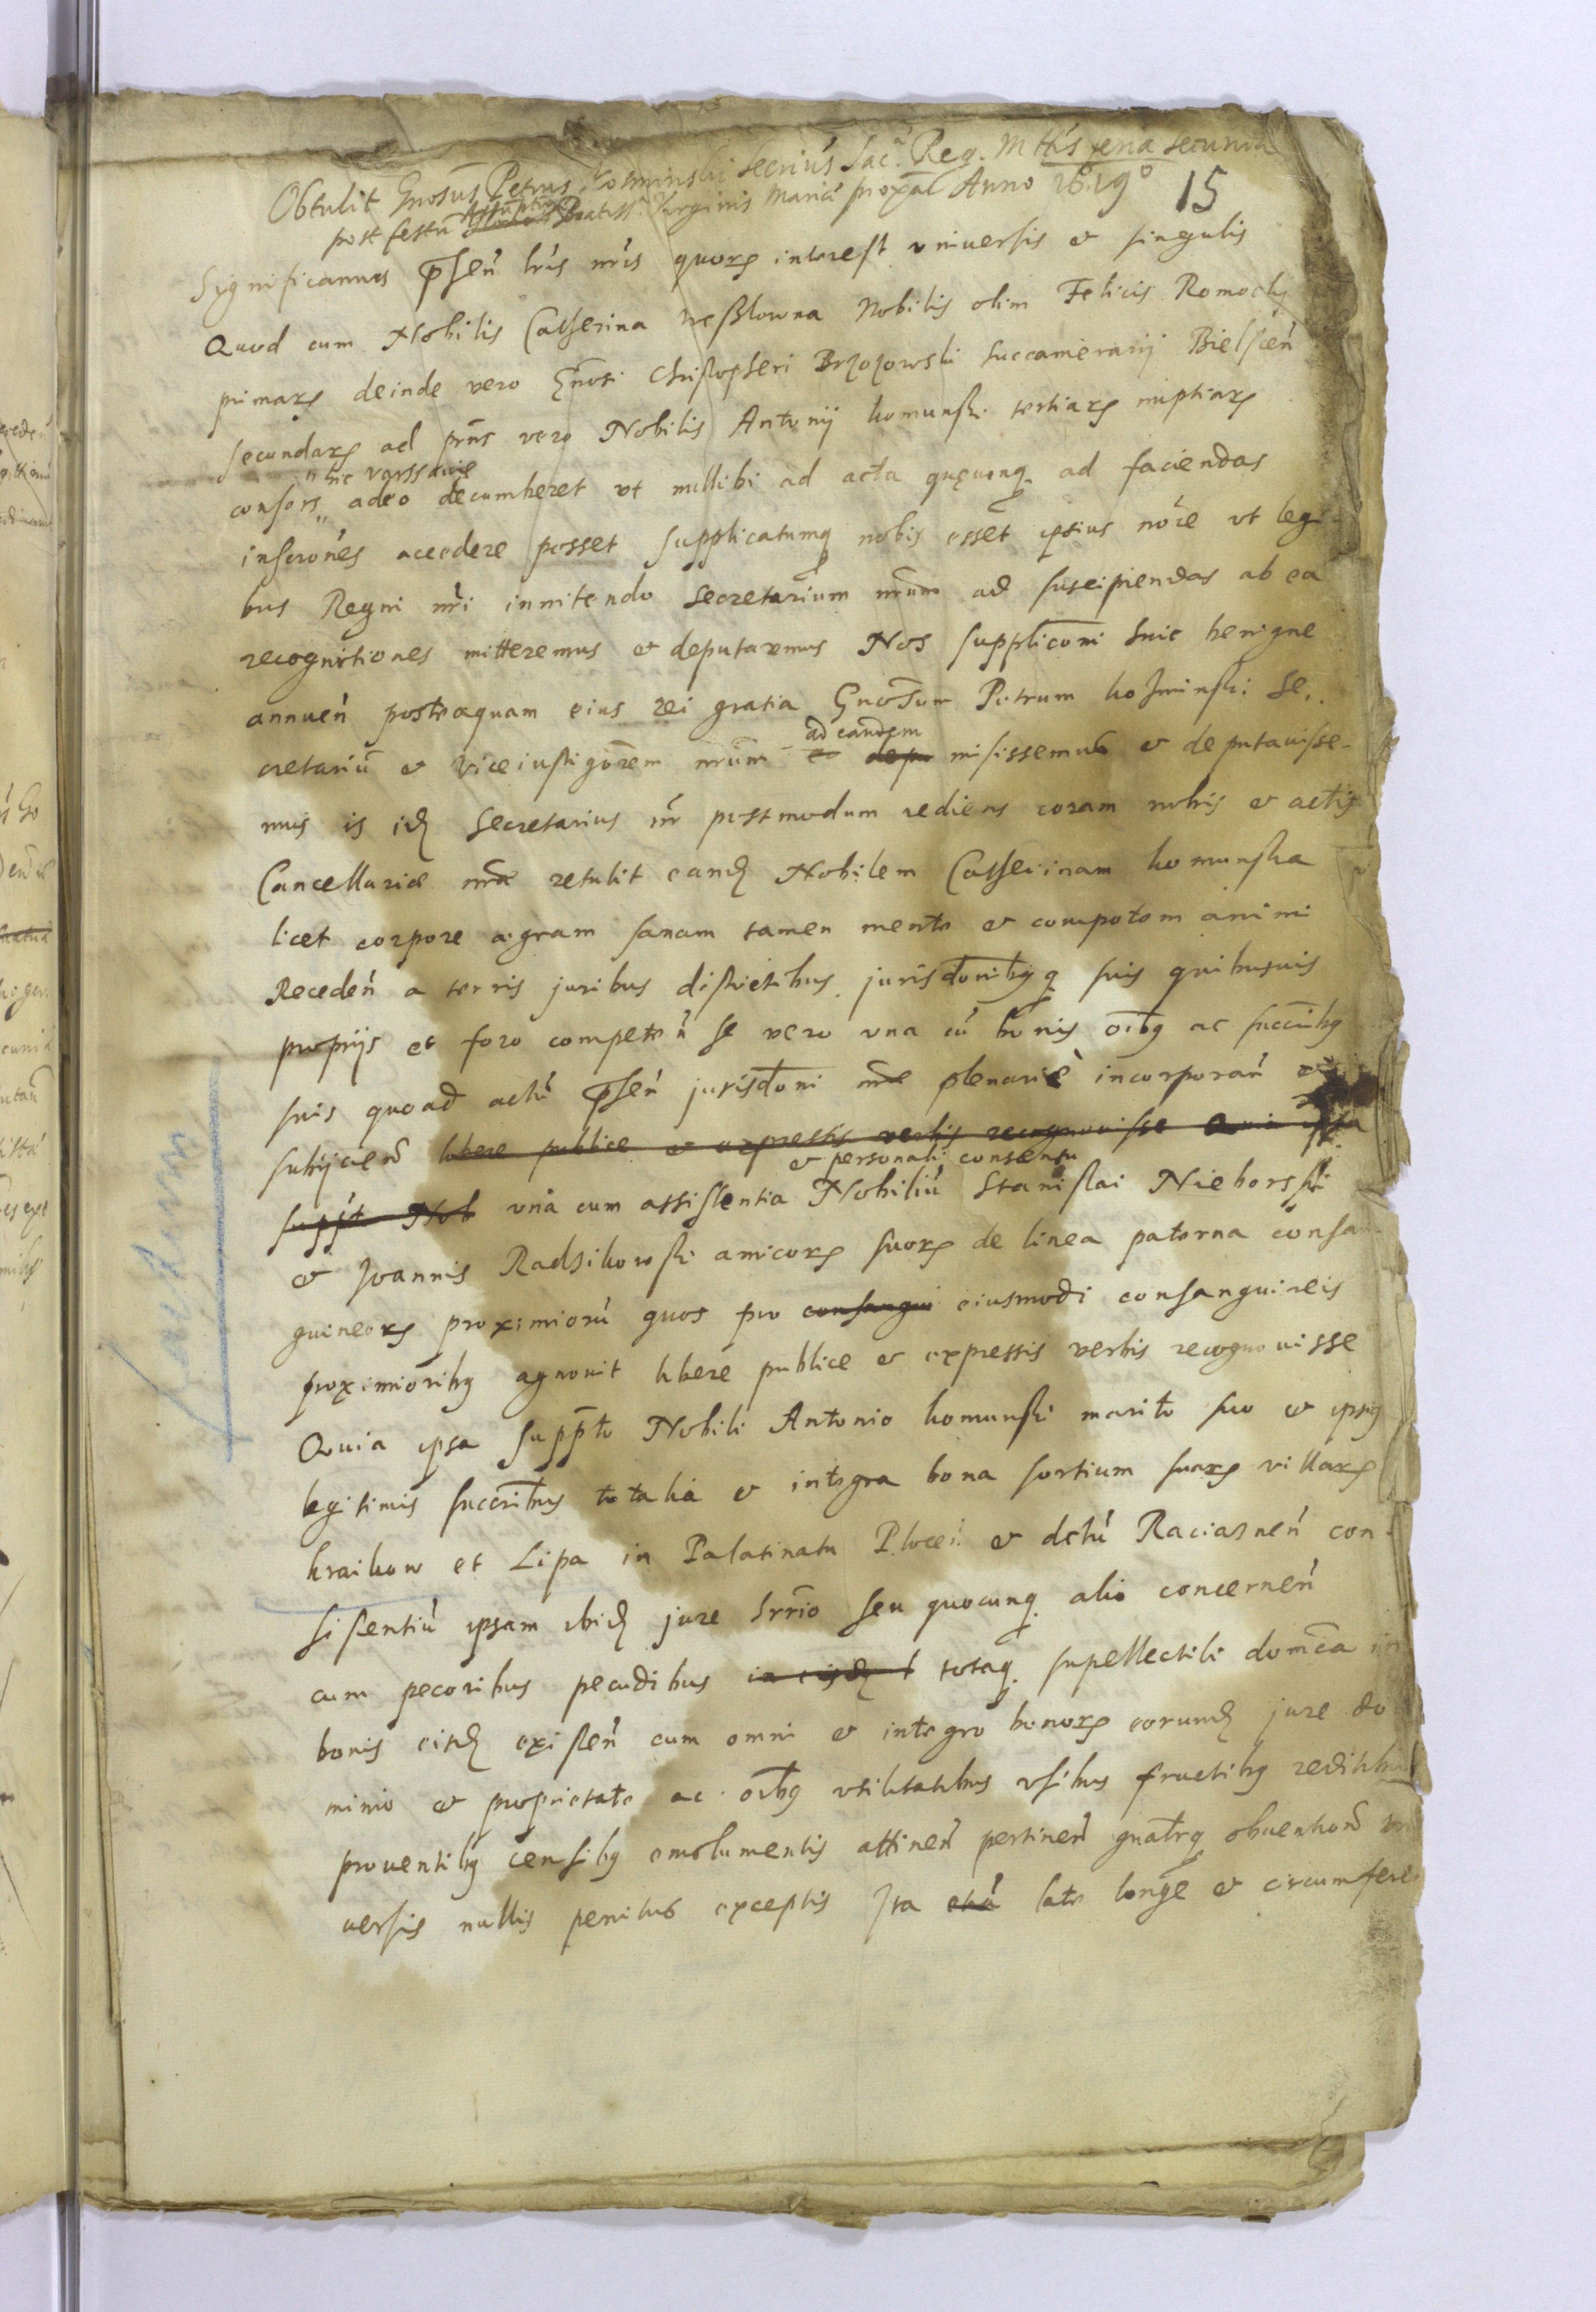 Obtulit Gnosus Petrus Kozminski Secrius Sac. Reg. Mttis feria secunda
post festu Assuptionis Beatiss. Virginis Mariæ proxa Anno 1619°
15
Significamus pñsen lris nris quorz interest vniuersis et singulis
Quod cum Nobilis Catherina Weßlowna Nobilis olim Felicis Romocky
primarz deinde vero Gnosi Christopheri Brzozowski Succamerarij Bielscen
secundarz ad prns vero Nobilis Antonij Komunski tertiarz nuptiarz
hic varssauiæ
consors adeo decumberet vt nullibi ad acta quęuonq ad faciendas
inscrones accedere posset supplicatumq nobis esset ipsius noie vt legi-
bus Regni nri innitendo Secretarium nrum ad suscipiendas ab ea
recognitiones mitteremus et deputaremus Nos suppliconi huic benigne
annuen posteaquam eius rei gratia Gnosum Petrum Kozminski Se-
ad eandem
cretariu et Viceinstigorem nrum et depu misissemus et deputauisse-
mus is idz Secretarius nr postmodum rediens coram nobis et actis
Cancellariæ nræ retulit eandz Nobilem Catherinam Komunska
licet corpore ægram sanam tamen mente et compotem animi
Receden a terris juribus districtibus jurisdonibq suis quibusuis
proprijs et foro competen se vero vna cu bonis oibq ac succribq
suis quoad actu pñsen jurisdoni nræ plenariè incorporan et
subijcien libere publice et expressis verbis recognouisse Quia ipsa
et personali consensu
suppt Nob vna cum assistentia Nobiliu Stanislai Nieborski
et Joannis Radzikowski amicorz suorz de linea paterna consan-
guineorz proximioru quos pro consangui eiusmodi consanguineis
proximioribq agnouit libere publice et expressis verbis recognouisse
Quia ipsa suppto Nobili Antonio Komunski marito suo et ipsiq
legitimis succribus totalia et integra bona sortium suarz villarz
Kraikow et Lipa in Palatinatu Plocen et dctu Raciaznen con-
sistentiu ipsam ibidz jure hrrio seu quocunq alio concernen
cum pecoribus pecudibus in eisdz totaq supellectili domca in
bonis eisdz existen cum omni et integro bonorz eorundz jure do
minio et proprietate ac oibq vtilitatibus vsibus fructibq reditibus
prouentibq censibq emolumentis attinen pertinen gnalrq obuentionibq vni
uersis nullis penitus exceptis Ita late longe et circumferen